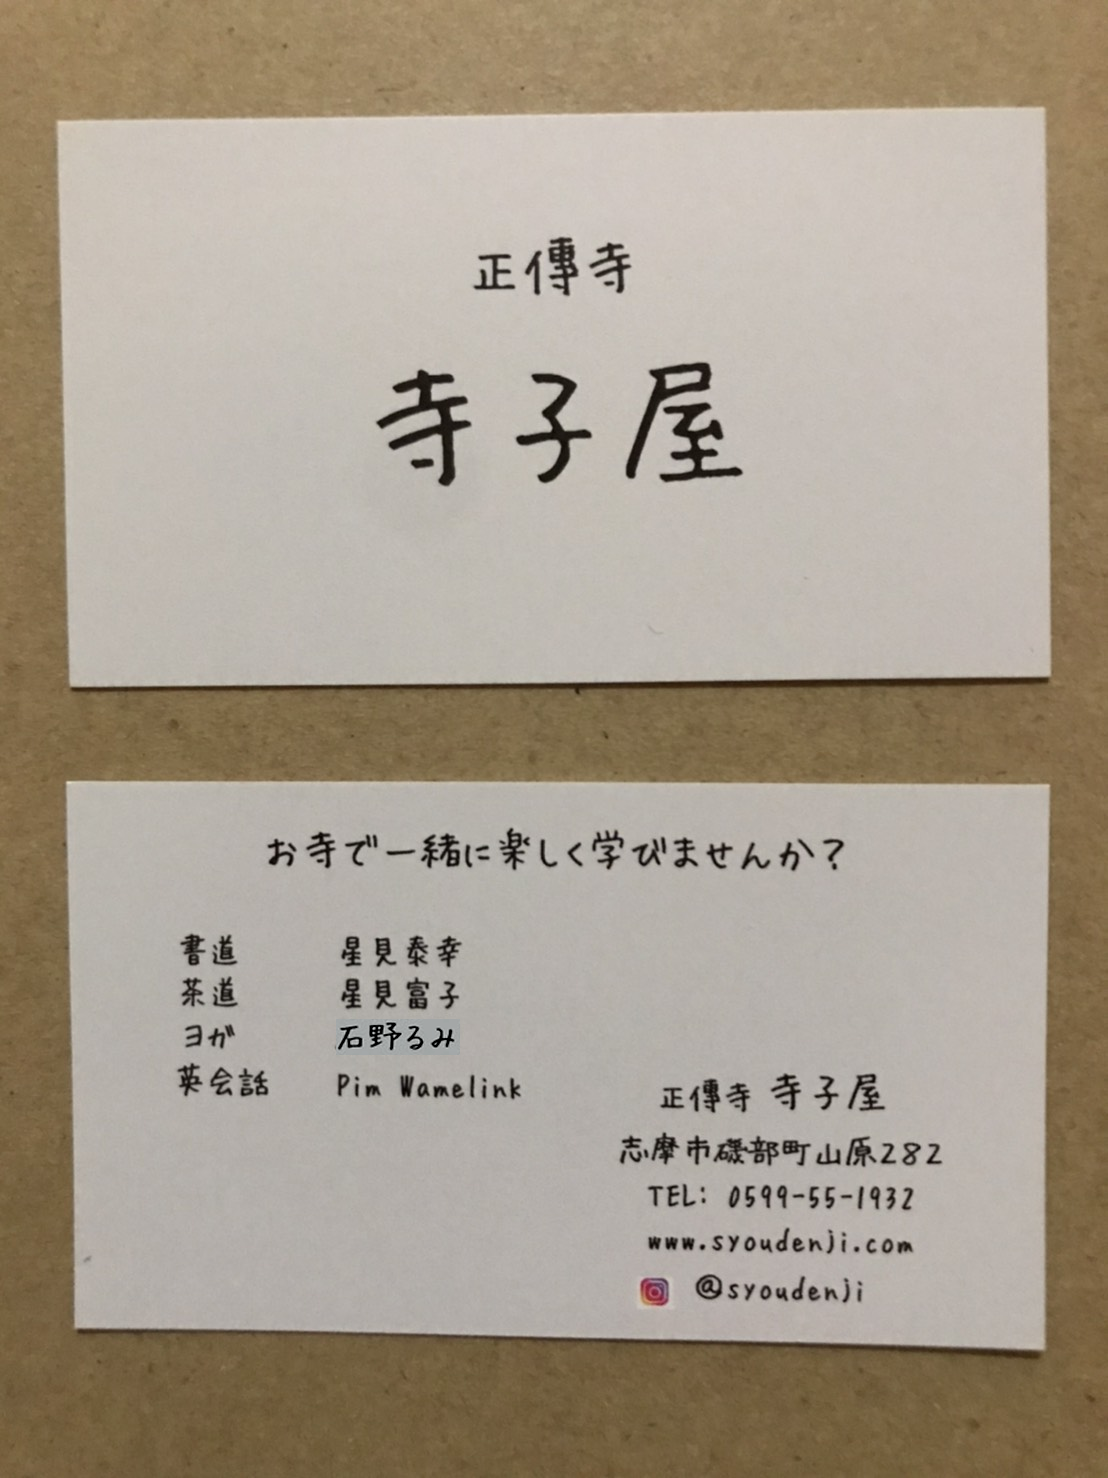 正傳寺
寺子屋
お寺で一緒に楽しく学びませんか?
書道 星見泰幸
茶道 星見富子
ヨガ 石野るみ
英会話 Pim Wamelink
正傳寺 寺子屋
志摩市磯部町山原282
TEL: 0599-55-1932
www.syoudenji.com
@syoudenji